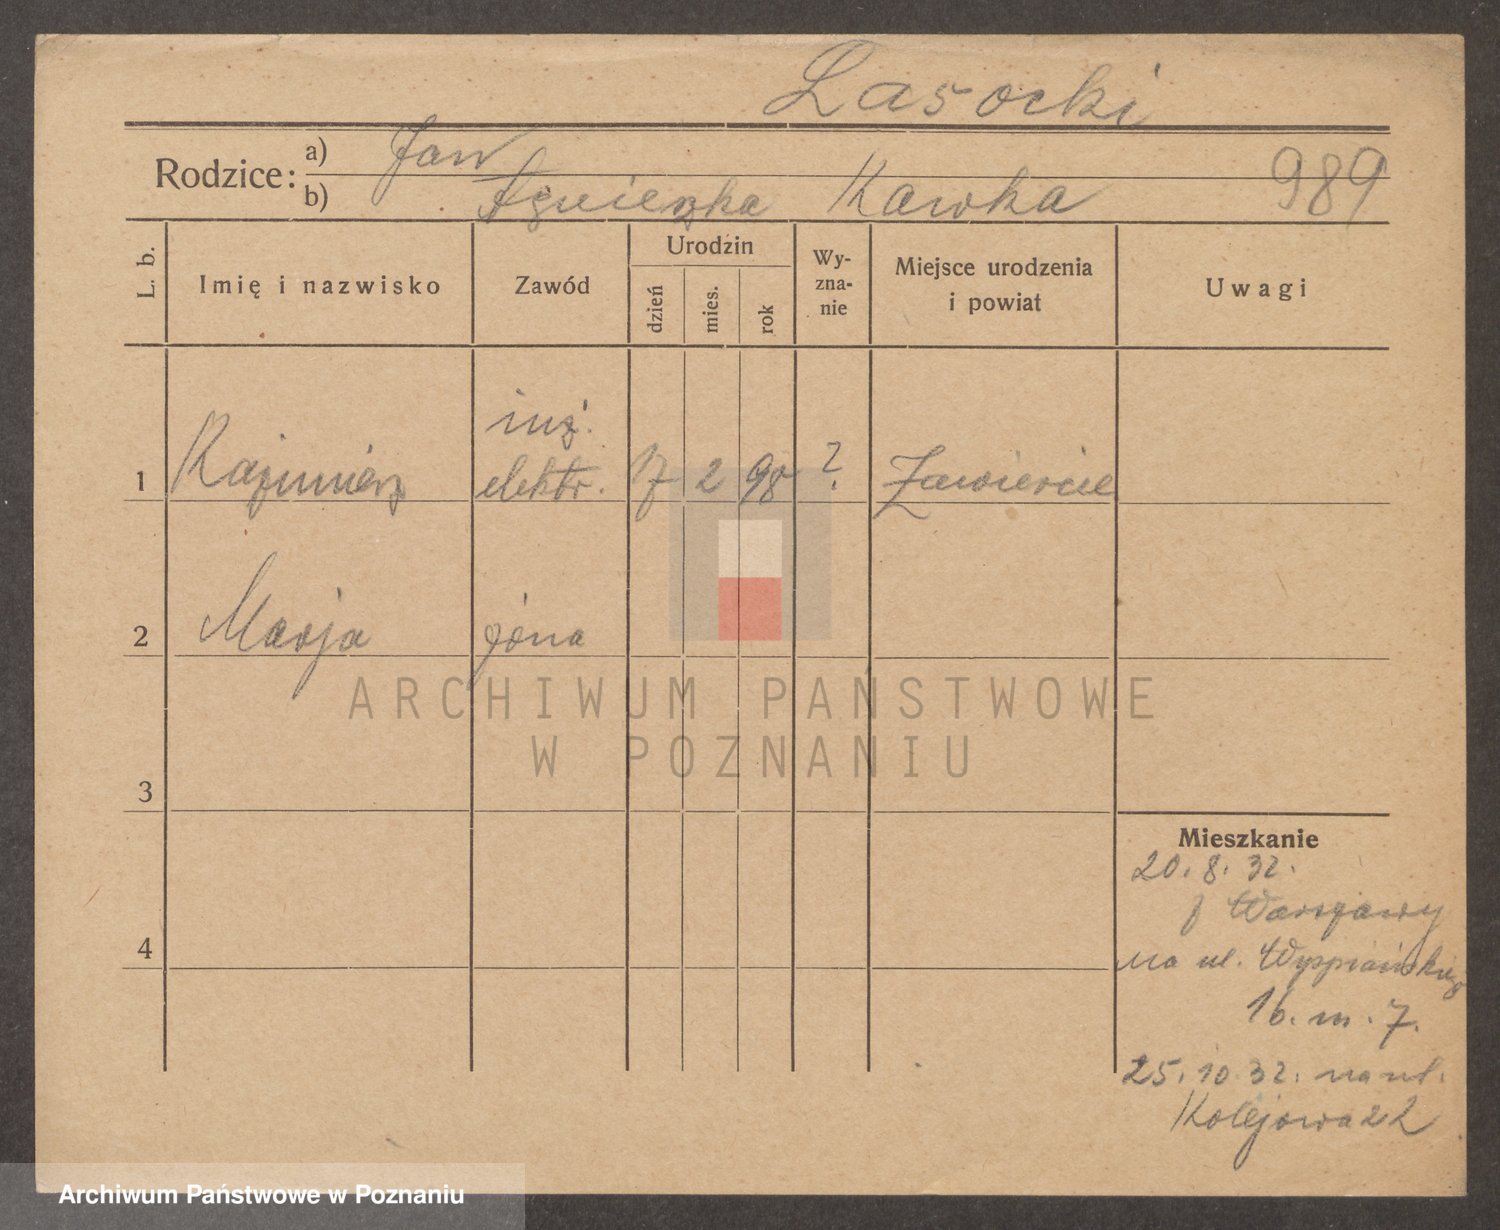 Lasocki
Rodzice: a) Jan
b) Agnieszka Kawka 989
L. b. Imię i nazwisko Zawód Urodzin dzień mies. rok Wy-zna-nie Miejsce urodzenia i powiat Uwagi
1 Kazimierz inż. elektr. 17 2 98 ? Zawiercie
2 Marja żona
ARCHIWUM PAŃSTWOWE
W POZNANIU
3
4
Mieszkanie
20. 8. 32.
z Warszawy
na ul. Wyspiańskiego
16. m. 7.
25. 10 32. na ul.
Kolejowa 22
Archiwum Państwowe w Poznaniu